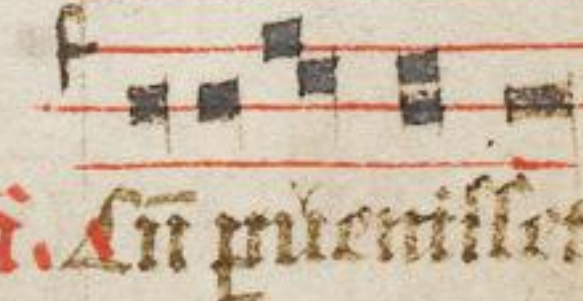 a̅. Cu̅ pueniſſet